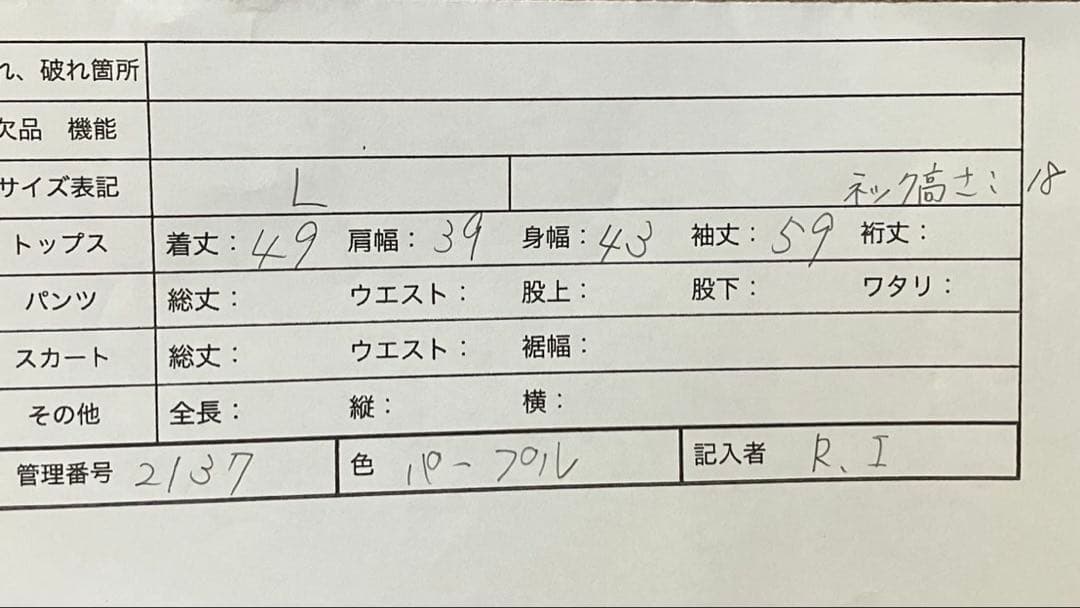 れ、破れ箇所
欠品 機能
サイズ表記 L ネック高さ： 18
トップス 着丈：49 肩幅：39 身幅：43 袖丈：59 裄丈：
パンツ 総丈： ウエスト： 股上： 股下： ワタリ：
スカート 総丈： ウエスト： 裾幅：
その他 全長： 縦： 横：
管理番号 2137 色 パープル 記入者 R.I